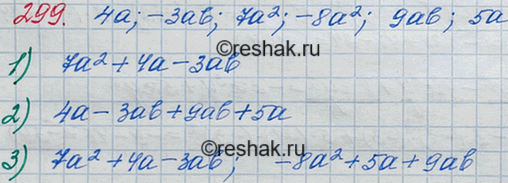 299. 4a; -3ab; 7a²; -8a²; 9ab; 5a
©reshak.ru
1) 7a² + 4a - 3ab
2) 4a - 3ab + 9ab + 5a
©reshak.ru
3) 7a² + 4a - 3ab; -8a² + 5a + 9ab